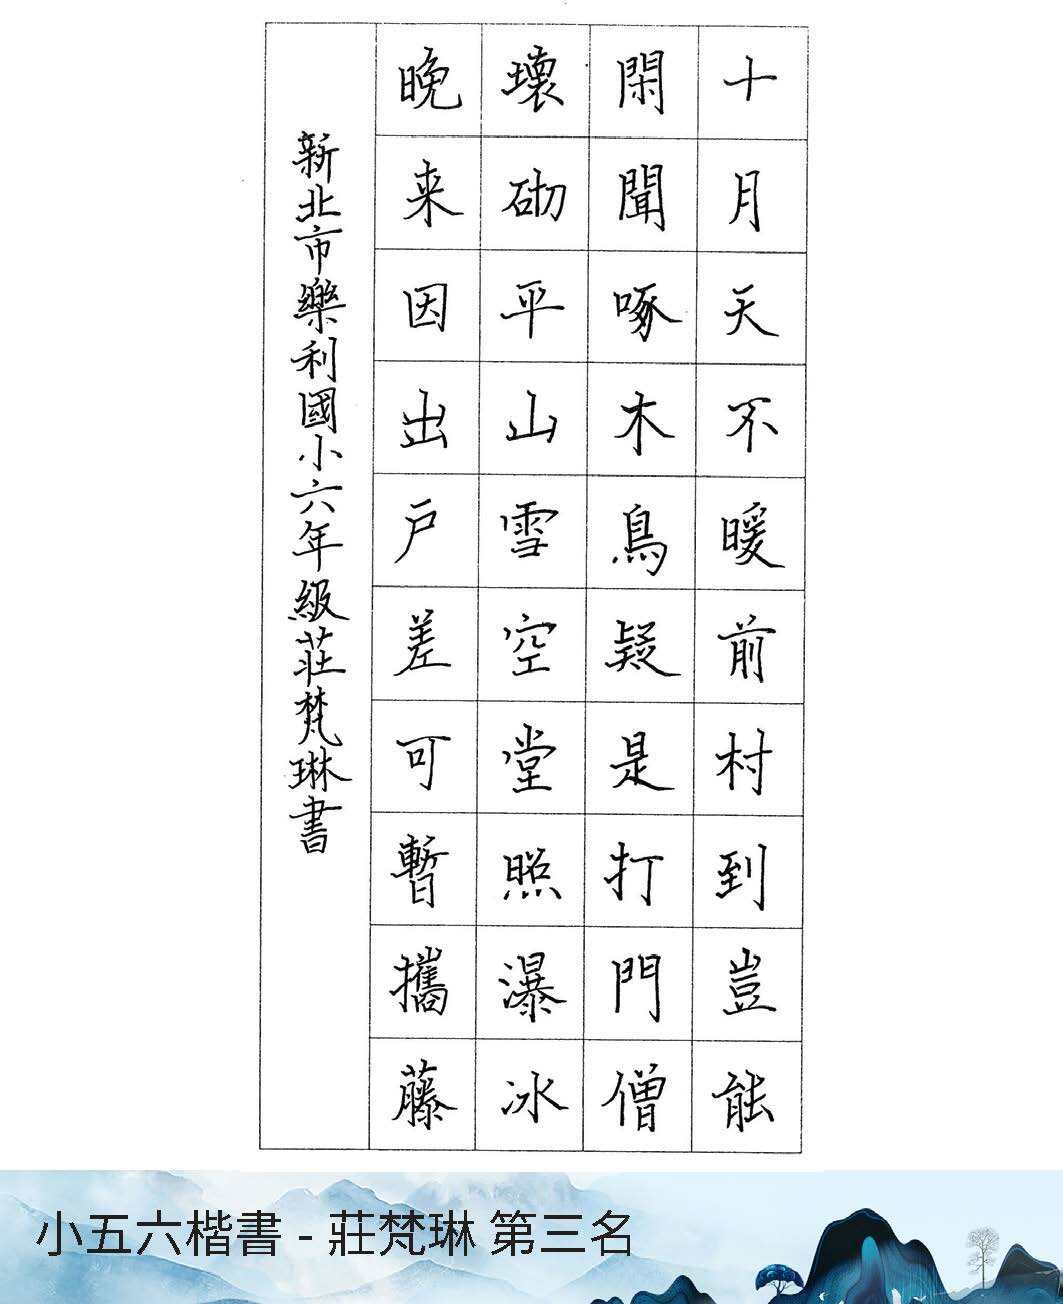 十月天不暖前村到豈能
閑聞啄木鳥疑是打門僧
壞砌平山雪空堂照瀑冰
晚来因出戶差可暫攜藤
新北市樂利國小六年級莊梵琳書
小五六楷書 - 莊梵琳 第三名